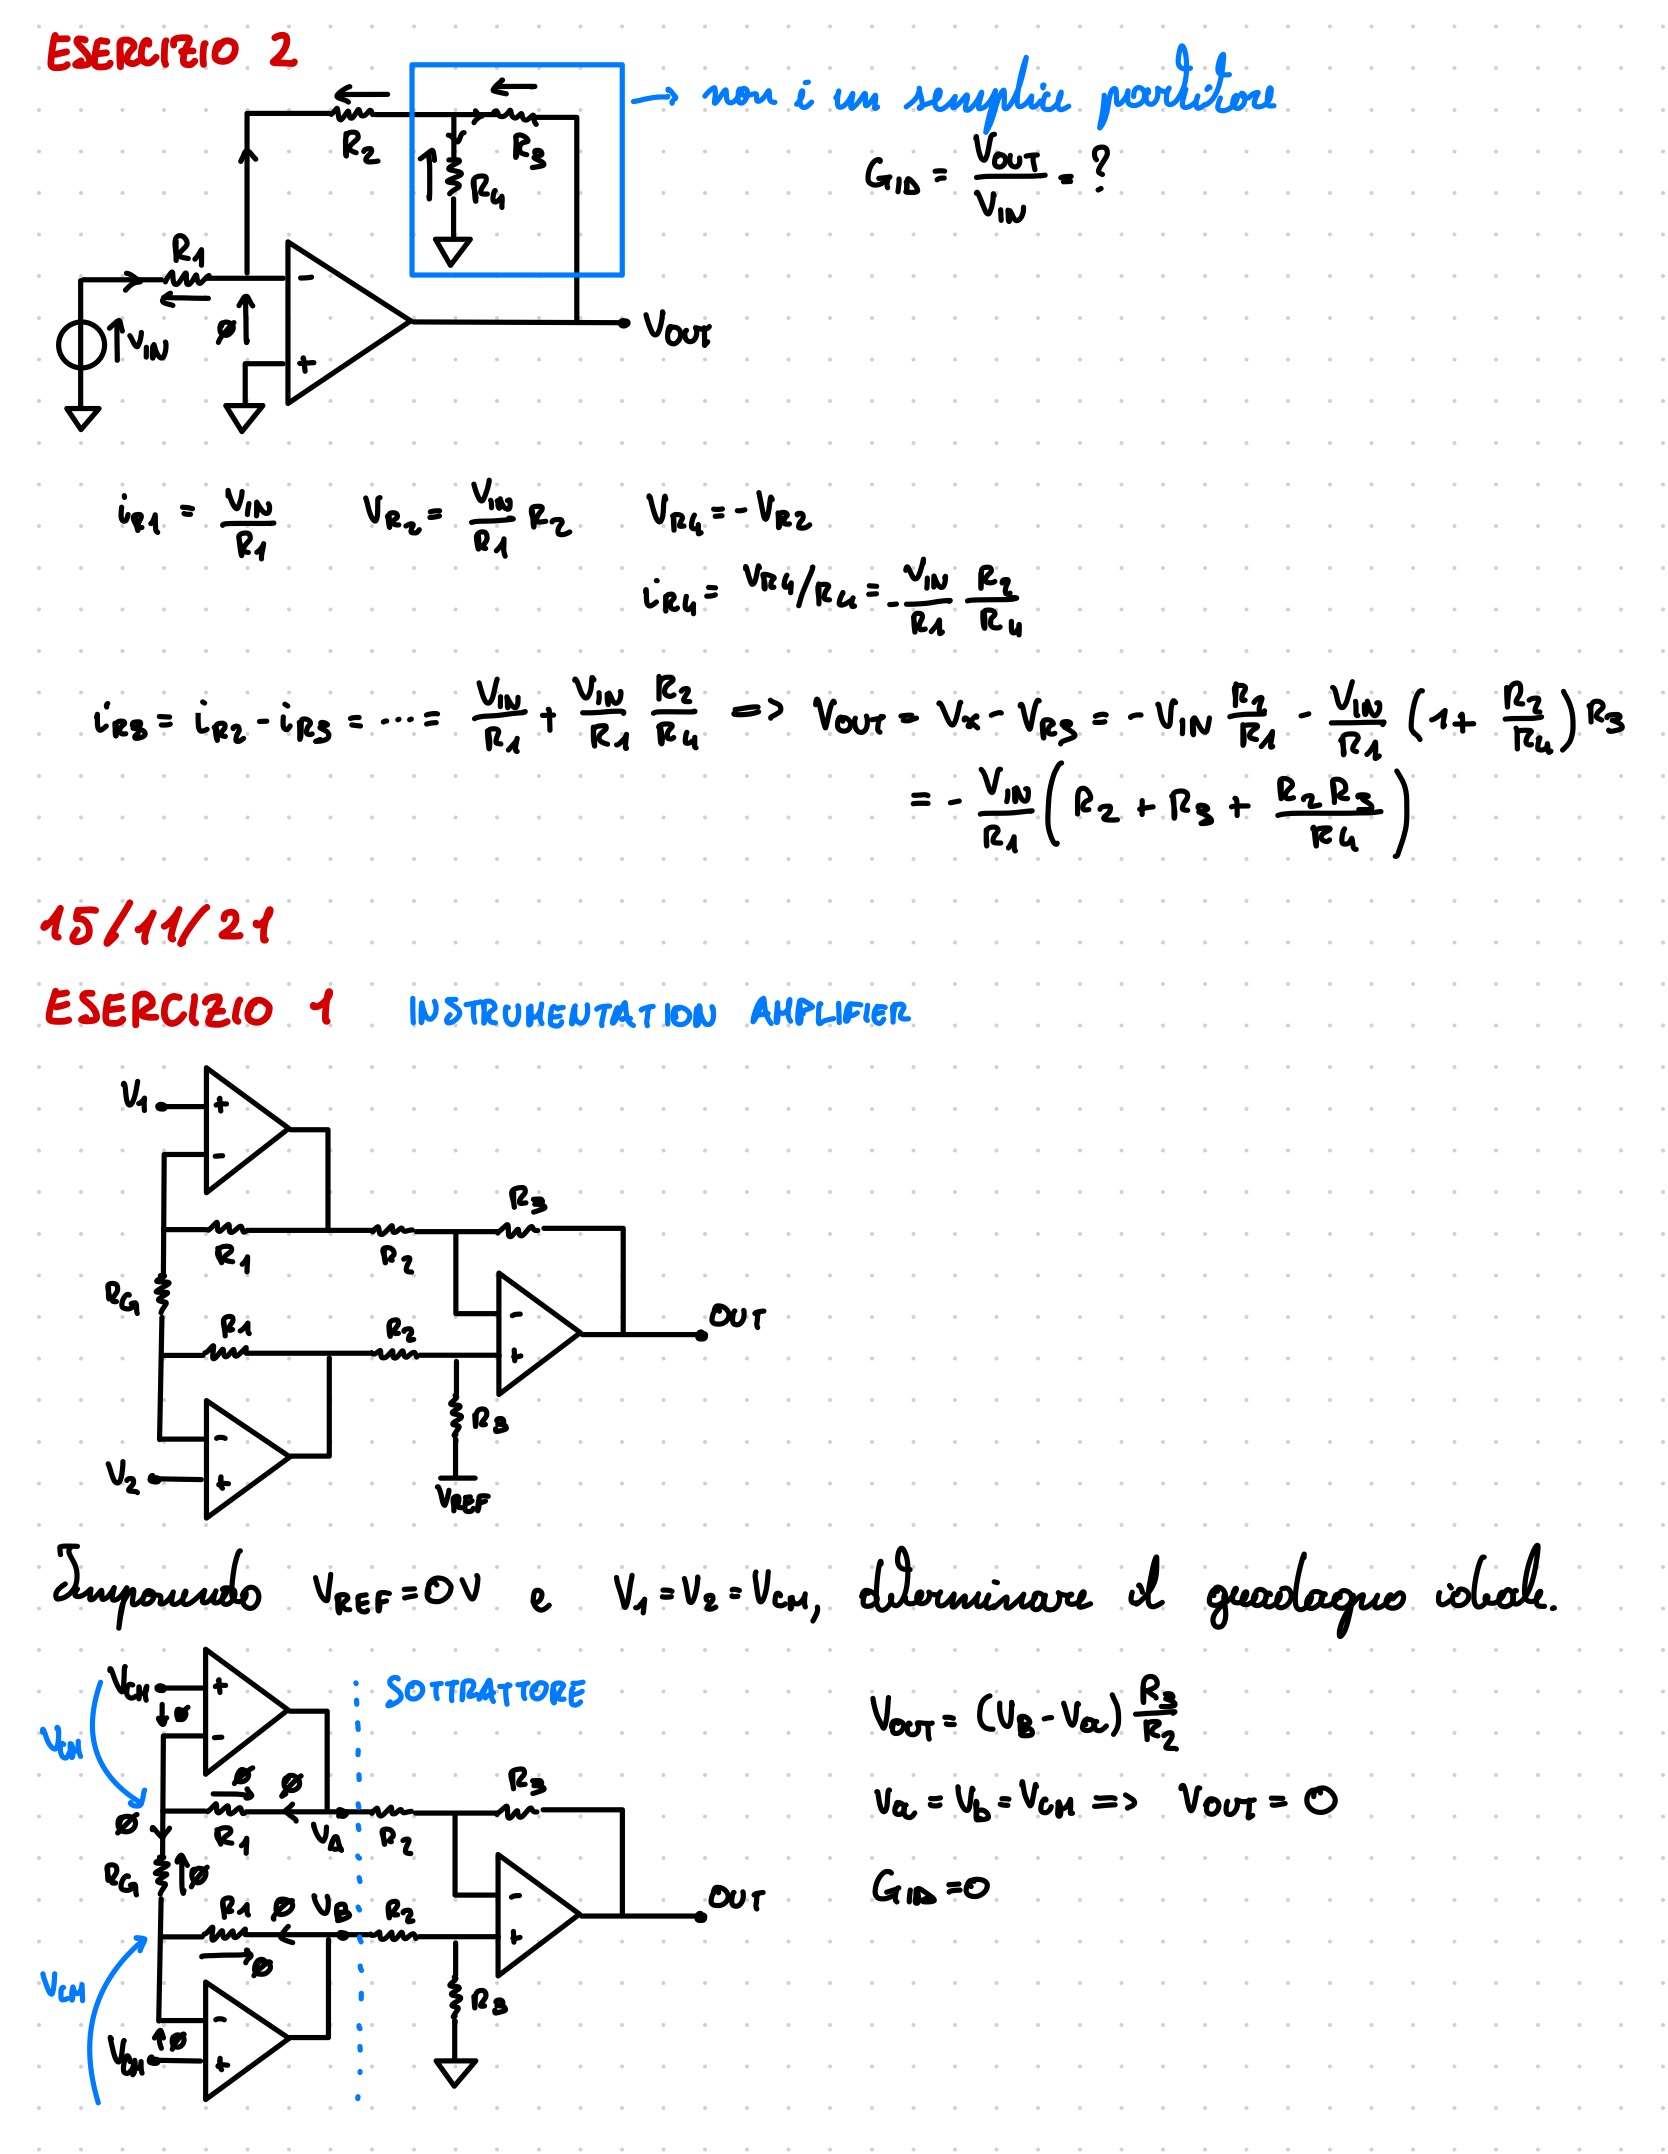 ESERCIZIO 2
→ non è un semplice partitore
R2
R3
R4
G_ID = V_OUT / V_IN = ?
R1
∅
V_IN
-
+
V_OUT
i_R1 = V_IN / R1    V_R2 = V_IN / R1 R2    V_R4 = - V_R2
i_R4 = V_R4 / R4 = - V_IN / R1 R2 / R4
i_R3 = i_R2 - i_R3 = ... = V_IN / R1 + V_IN / R1 R2 / R4 => V_OUT = V_x - V_R3 = - V_IN R2 / R1 - V_IN / R1 (1 + R2 / R4) R3
= - V_IN / R1 (R2 + R3 + R2 R3 / R4)
15/11/21
ESERCIZIO 1 INSTRUMENTATION AMPLIFIER
V1
+
-
R3
R1
R2
RG
R1
R2
-
+
OUT
-
R3
V2
+
V_REF
Imponendo V_REF = 0 V e V1 = V2 = V_CM, determinare il guadagno ideale.
V_CM
+
SOTTRATTORE
∅
-
V_CM
V_OUT = (V_B - V_a) R3 / R2
∅
∅
R3
∅
R1
V_A
R2
V_a = V_b = V_CM => V_OUT = 0
RG
∅
R1
∅
V_B
R2
-
+
OUT
G_ID = 0
∅
V_CM
R3
-
∅
V_CM
+